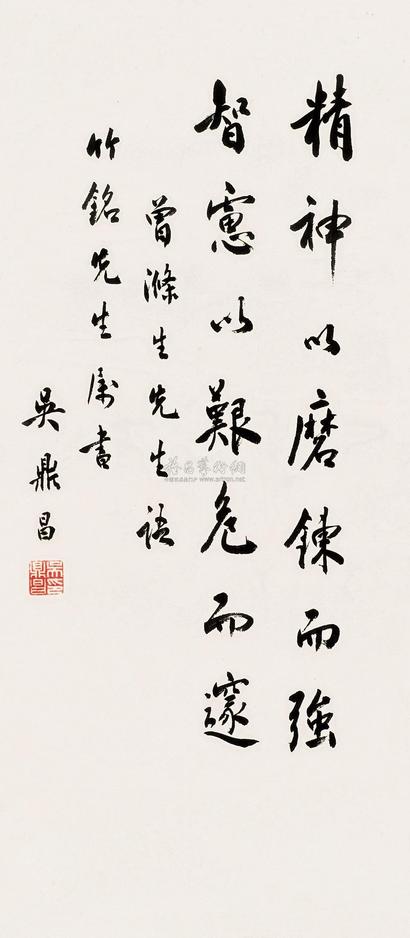 精神以磨鍊而強
智慮以艱危而邃
曾滌生先生語
竹銘先生属書
吳鼎昌
雅昌藝術網
www.artron.net